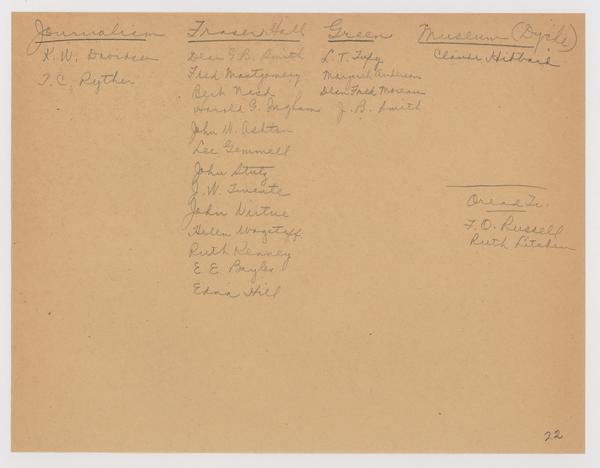 Journalism
K. W. Davidson
T. C. Ryther
Fraser Hall
Dean G. B. Smith
Fred Montgomery
Bert Nash
Harold G. Ingham
John W. Ashton
Lee Gemmell
John Stutz
J. W. Twente
John Virtue
Helen Wagstaff
Ruth Kenney
E. E. Bayles
Edna Hill
Green
L. T. Tupy
Margaret Anderson
Dean Fred Moreau
J. B. Smith
Museum (Dyche)
Claude Hibbard
Oread Tr.
F. O. Russell
Ruth Litchen
22